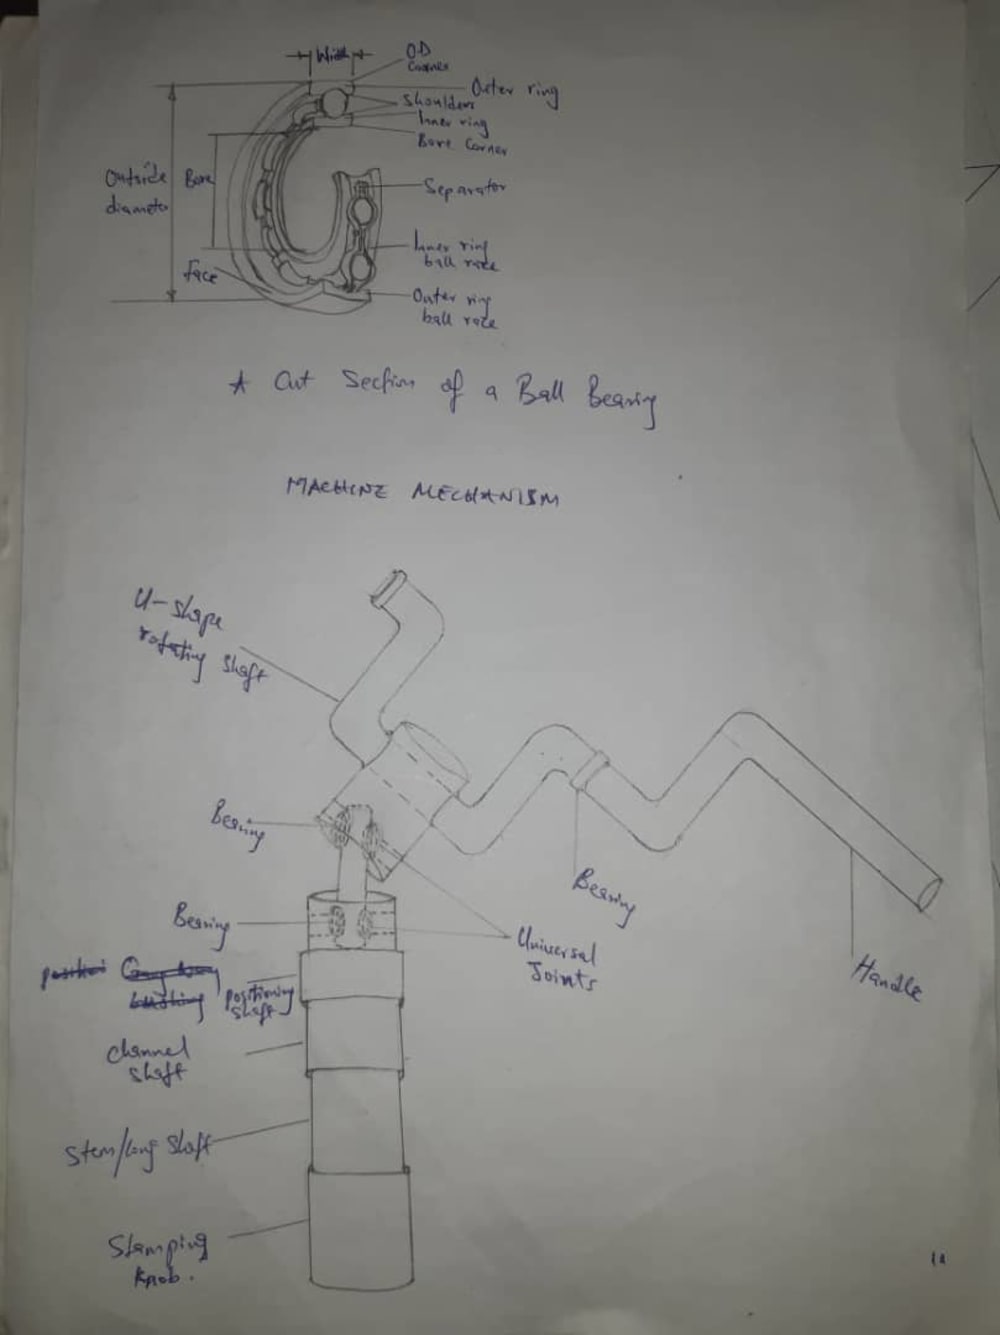 Width
O.D
Corner
Outer ring
Shoulders
Inner ring
Bore Corner
Outside
diameter
Bore
Separator
Inner ring
ball race
Face
Outer ring
ball race
A Cut Section of a Ball Bearing
MACHINE MECHANISM
U-shape
rotating shaft
Bearing
Bearing
Bearing
Universal
Joints
Handle
bushing
positioning
shaft
Channel
shaft
Stem/long shaft
Stamping
knob.